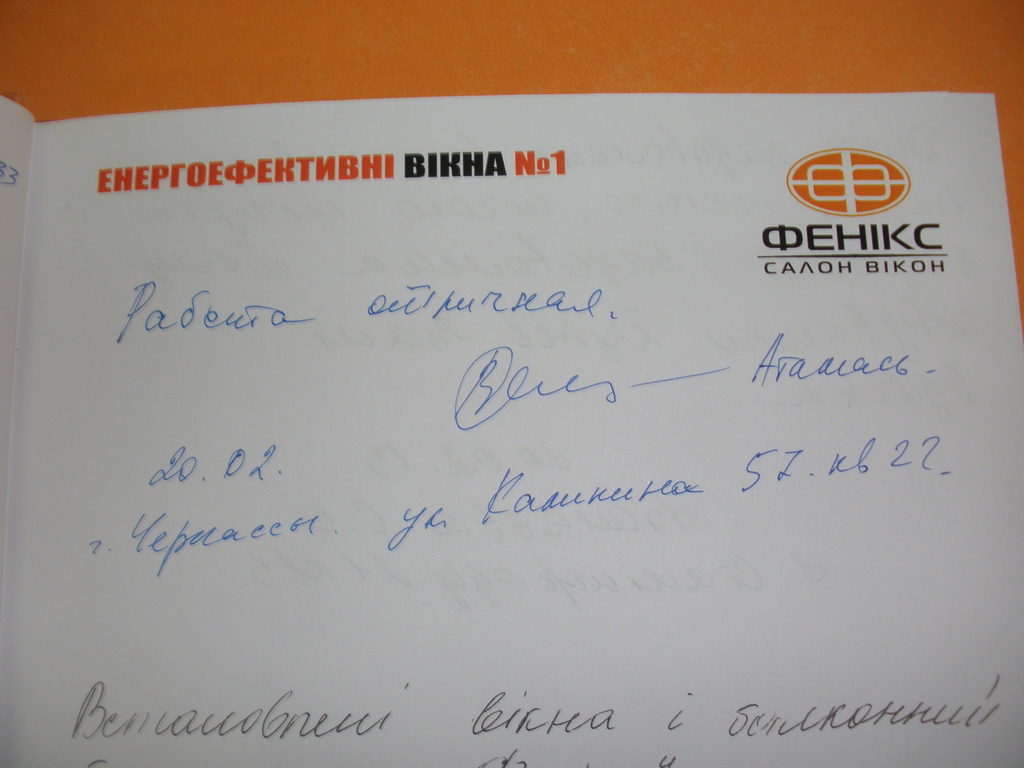 ЕНЕРГОЕФЕКТИВНІ ВІКНА №1
ФЕНІКС
САЛОН ВІКОН
Работа отличная.
Атамась.
20.02.
г. Черкассы. ул Калинина 57. кв 22.
Встановлені вікна і балконний